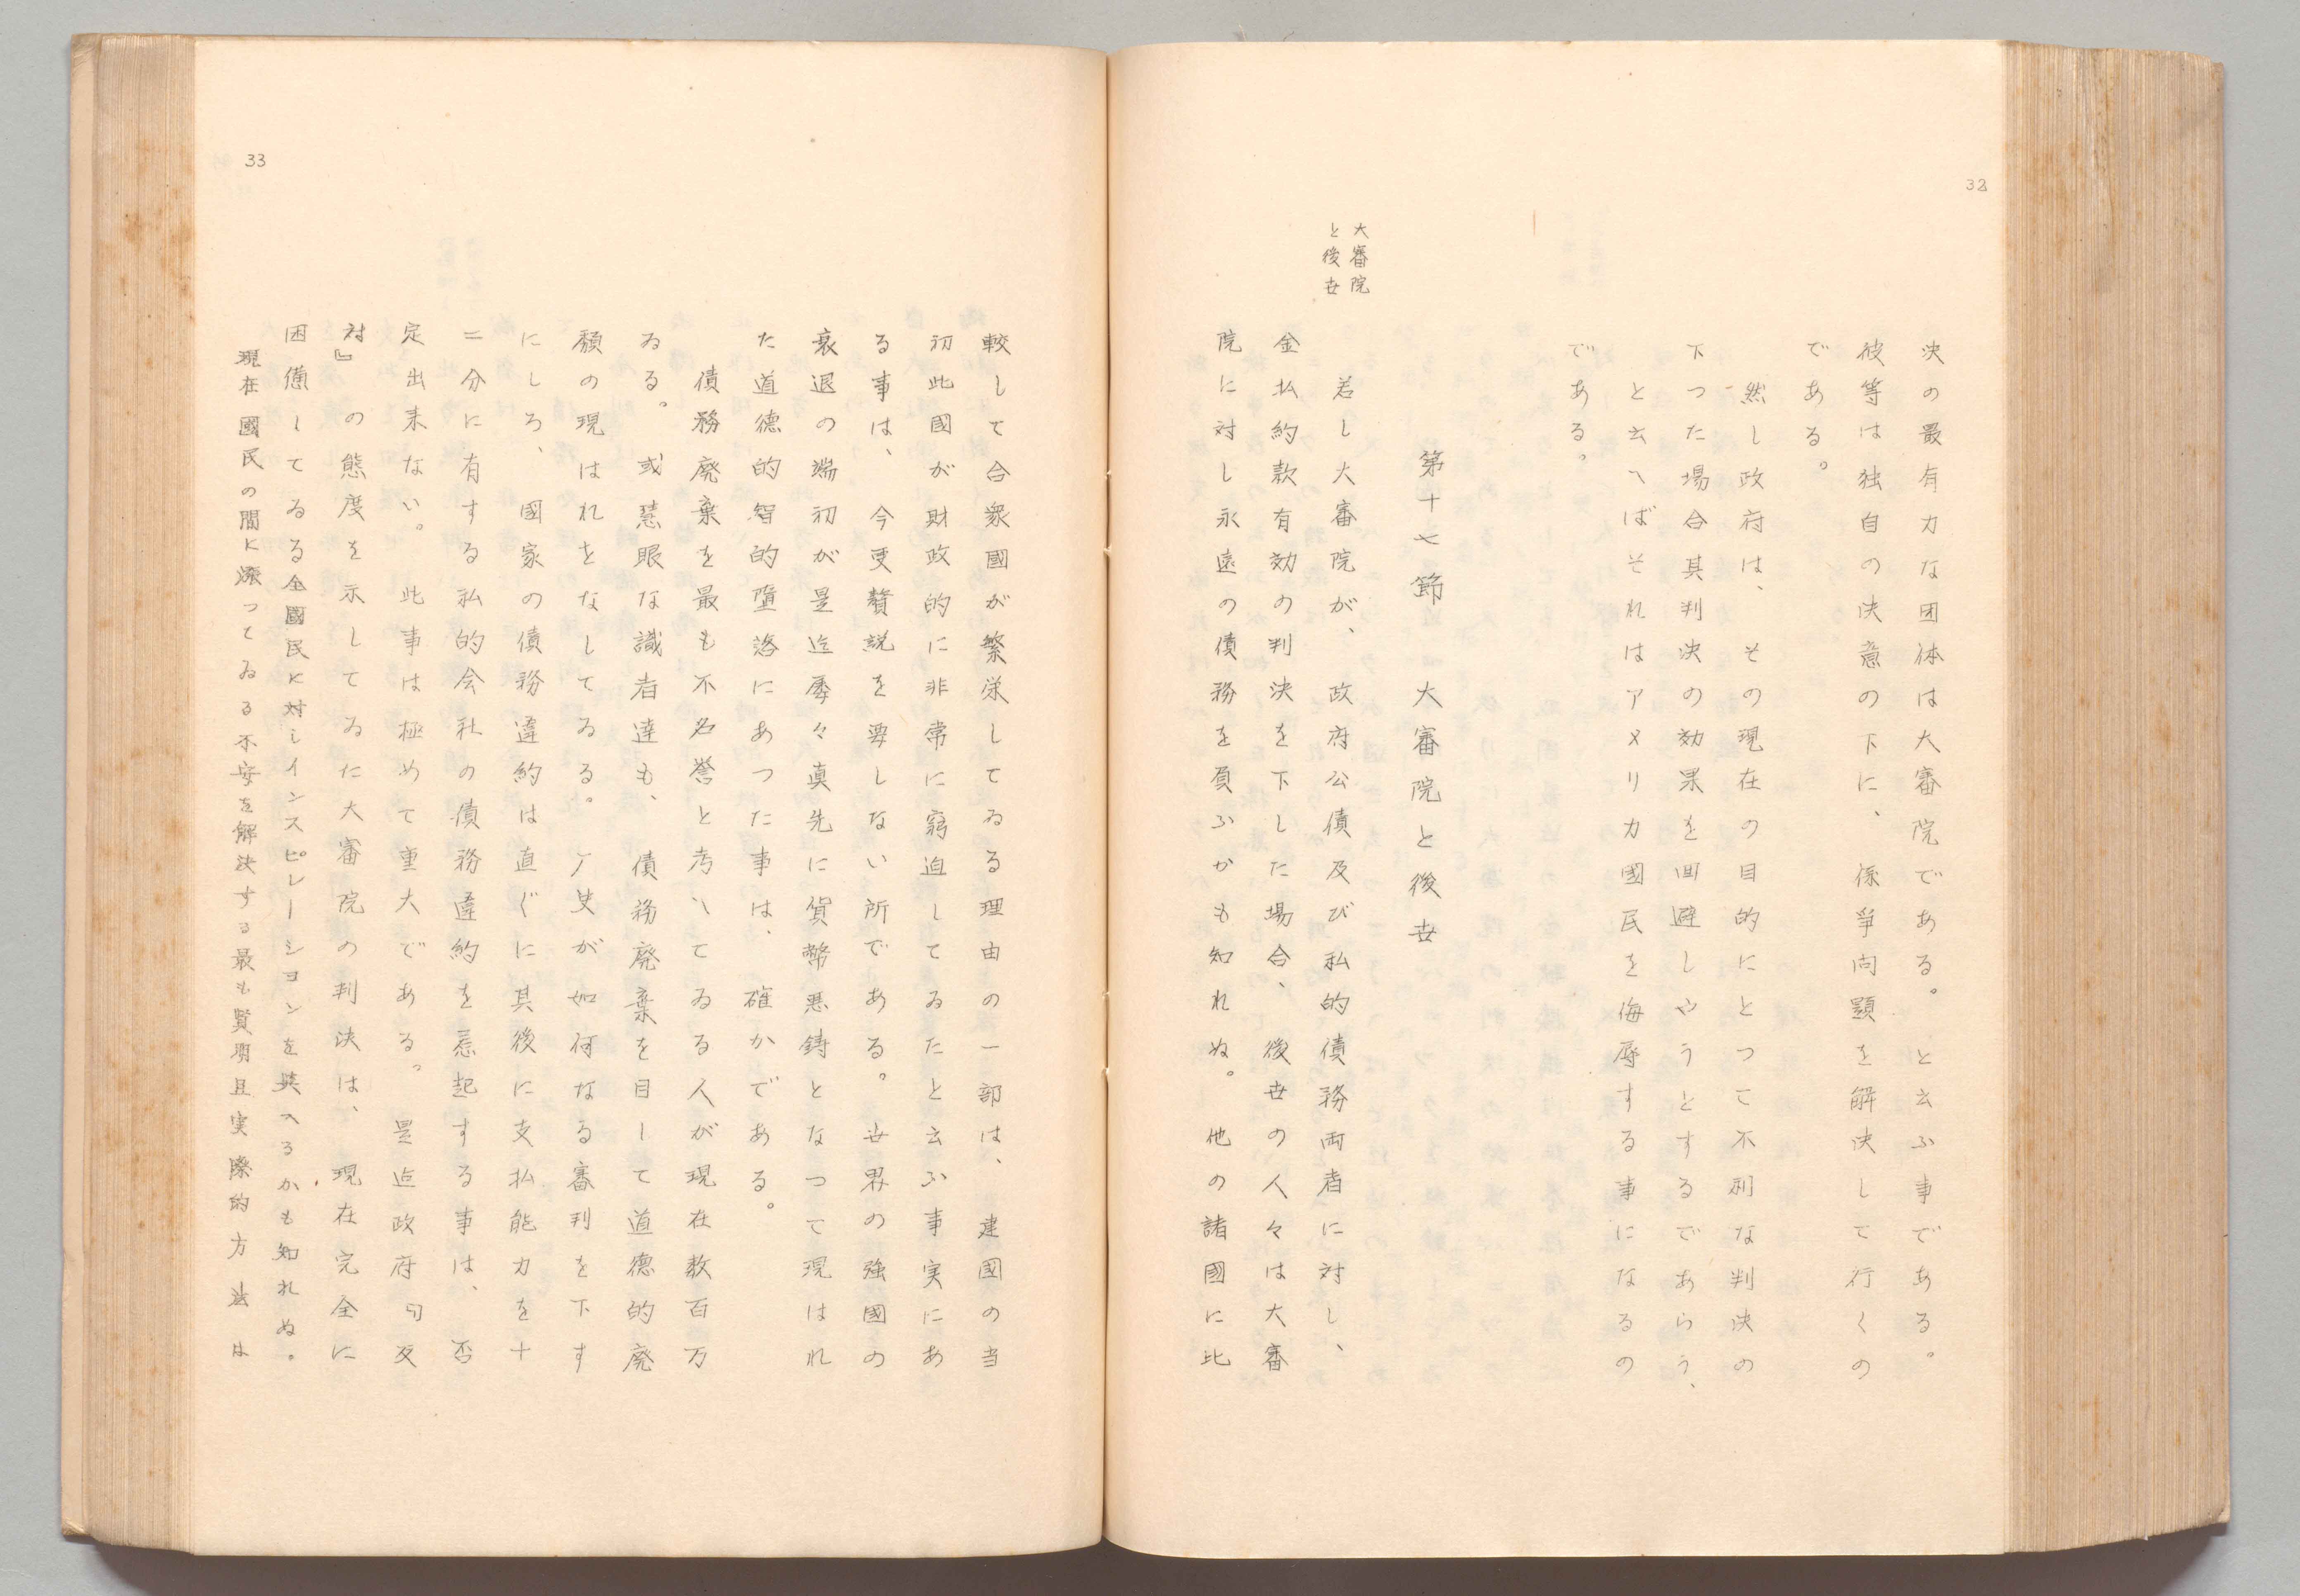 32
決の最有力な団体は大審院である。と云ふ事である。
彼等は独自の決意の下に、係爭問題を解決して行くの
である。
然し政府は、その現在の目的にとつて不利な判決の
下つた場合其判決の効果を回避しやうとするであらう、
と云へばそれはアメリカ國民を侮辱する事になるの
である。
第十七節　大審院と後世
大審院
と後世
若し大審院が、政府公債及び私的債務両者に対し、
金払約款有効の判決を下した場合、後世の人々は大審
院に対し永遠の債務を負ふかも知れぬ。他の諸國に比
33
較して合衆國が繁栄してゐる理由の一部は、建國の当
初此國が財政的に非常に窮迫してゐたと云ふ事実にあ
る事は、今更贅説を要しない所である。世界の強國の
衰退の端初が是迄屡々真先に貨幣悪鋳となつて現はれ
た道德的智的墮落にあつた事は、確かである。
債務廃棄を最も不名誉と考へてゐる人が現在数百万
ゐる。或慧眼な識者達も、債務廃棄を目して道德的廃
頽の現はれをなしてゐる。厂史が如何なる審判を下す
にしろ、國家の債務違約は直ぐに其後に支払能力を十
二分に有する私的会社の債務違約を惹起する事は、否
定出来ない。此事は極めて重大である。是迄政府『反
対』の態度を示してゐた大審院の判決は、現在完全に
困憊してゐる全國民に対しインスピレーシヨンを與へるかも知れぬ。
現在國民の間に漲つてゐる不安を解決する最も賢明且実際的方法は